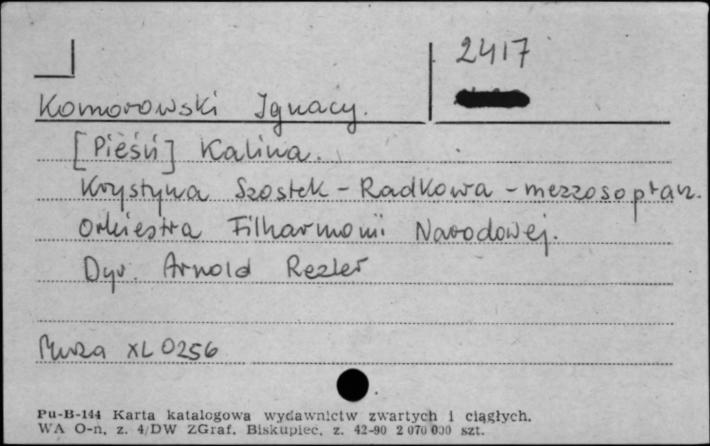 2417
Komorowski Ignacy.
[Pieśń] Kalina.
Krystyna Szostek-Radkowa - mezzosopran.
Orkiestra Filharmonii Narodowej.
Dyr. Arnold Rezler
Muza XL 0256
Pu-B-144 Karta katalogowa wydawnictw zwartych i ciągłych.
WA O-n, z. 4/DW ZGraf. Biskupiec, z. 42-90 2 070 000 szt.